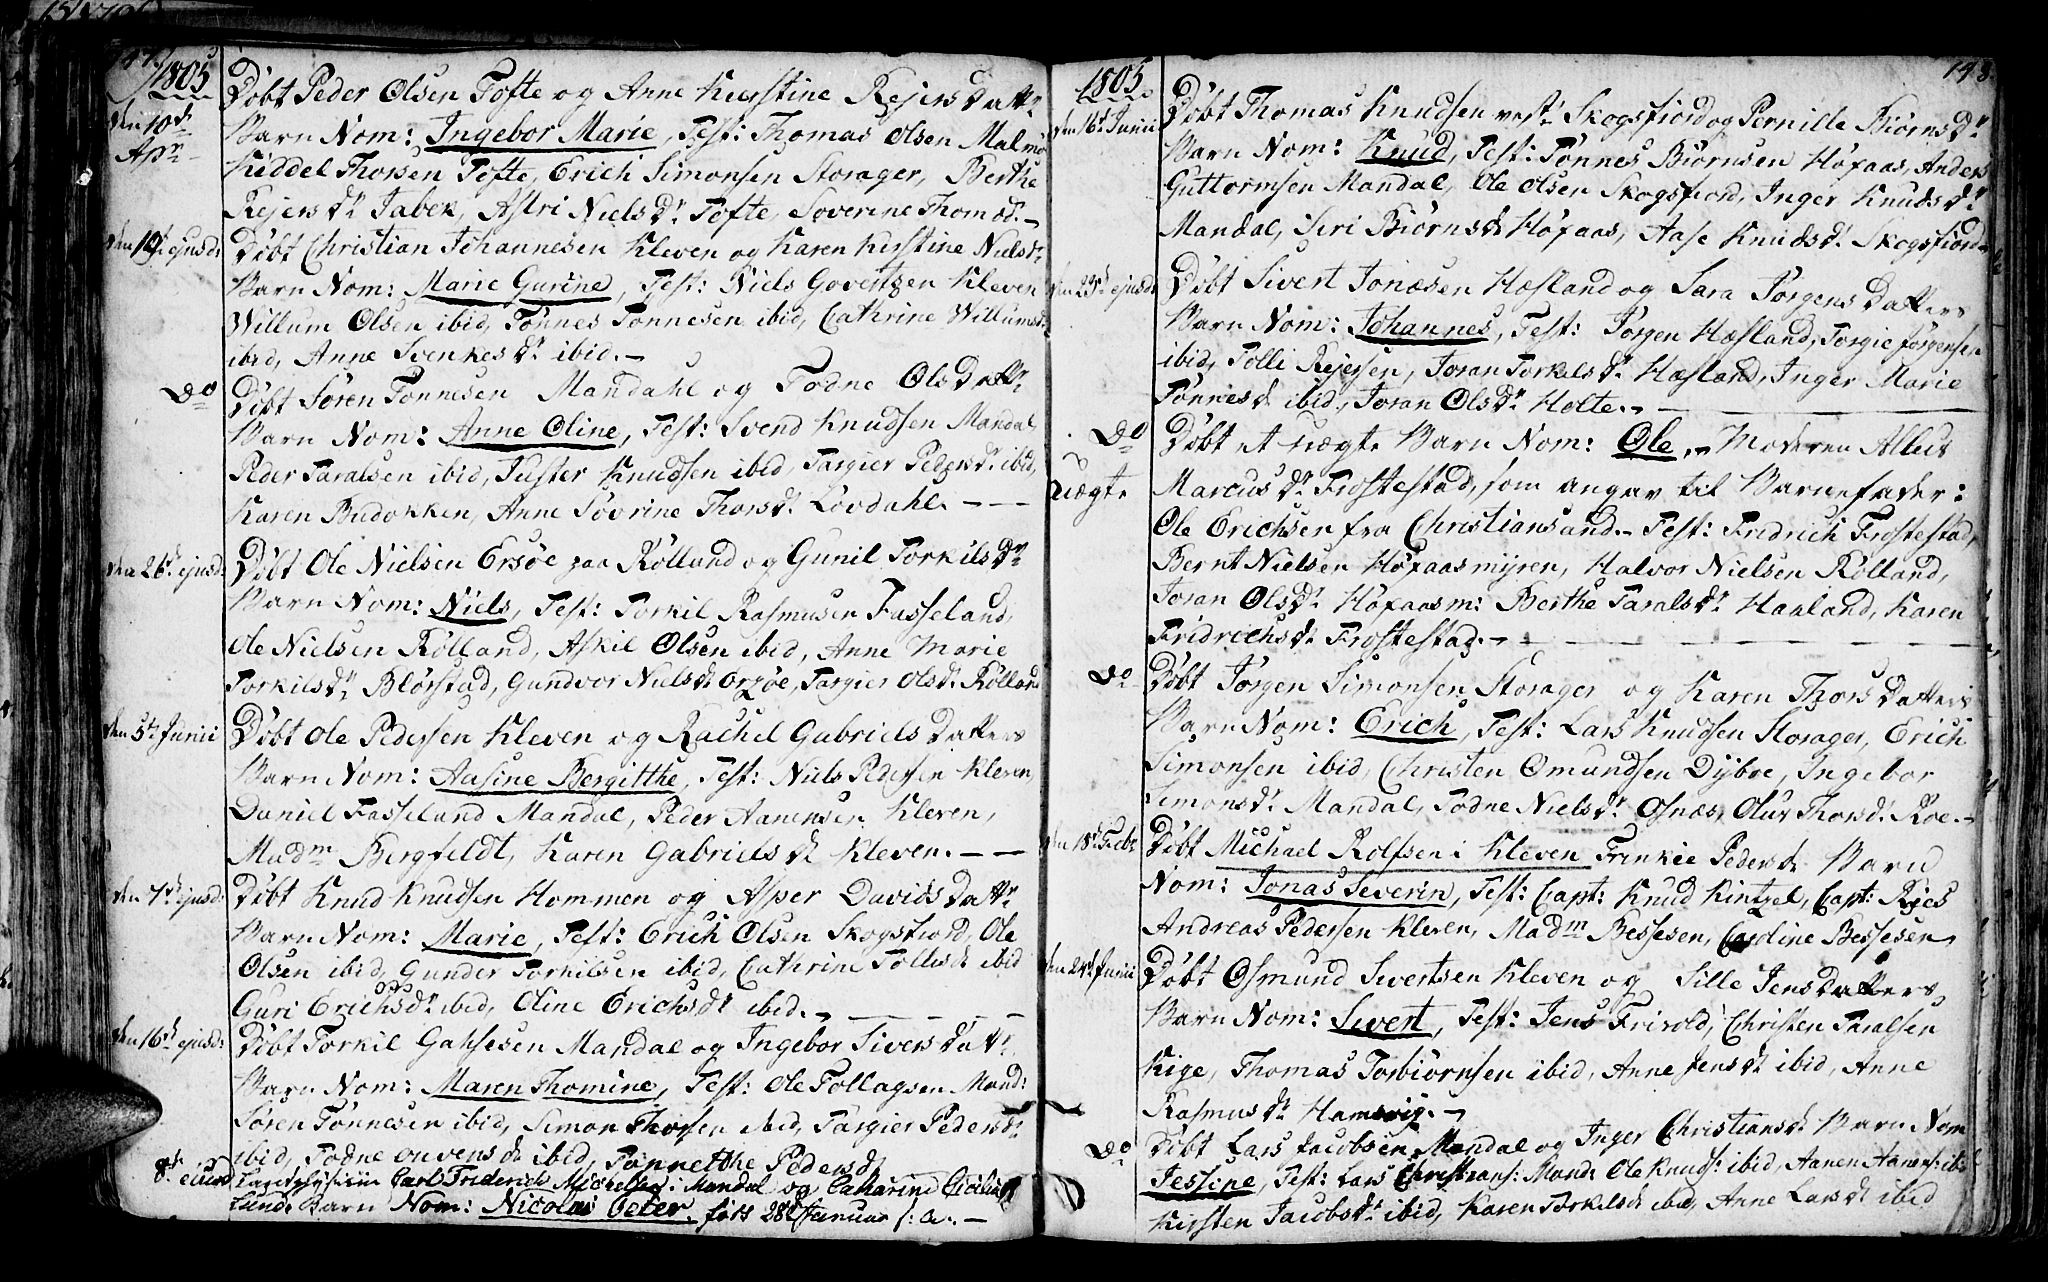 147.
1805
den 10de Apr
Døbt Peder Olsen Tofte og Anne Kierstine Rejers Dattr
Barn Nom: Ingebor Marie, Test: Thomas Olsen Malmø
Kiddel Thorsen Tofte, Erich Simonsen Storager, Berthe
Rejers Dr Jabek, Astri Niels Dr Tofte, Soverine Thom D. –
den 10de ejusd:
Døbt Christian Johannesen Kleven og Karen Kirstine Niels dr
Barn Nom: Marie Gurine, Test: Niels Govertzen Kleven
Willum Olsen ibid, Tønnes Tønnesen ibid, Cathrine Willumsd.
ibid, Anne Svenkes Dr ibid. –
Do
Døbt Søren Tønnesen Mandahl og Todne Ols Dattr
Barn Nom: Anne Oline, Test: Svend Knudsen Mandal
Peder Taralsen ibid, Juster Knudsen ibid, Targier Peders dr ibid,
Karen Budokken, Anne Sövrine Thors dr Lövdahl. – – –
den 26de ejusd:
Døbt Ole Nielsen Ersøe paa Rölland og Gunil Torkils Dr
Barn Nom: Niels, Test: Torkil Rasmusen Fasseland,
Ole Nielsen Rölland, Askil Olsen ibid, Anne Marie
Torkils Dr Blörstad, Gundvor Niels dr Orzöe, Targier Ols dr Rölland
den 5te Junii
Døbt Ole Pedersen Kleven og Rachel Gabriels Datters
Barn Nom: Aasine Bergitthe, Test: Niels Pedersen Kleven,
Daniel Fasseland Mandal, Peder Aanensen Kleven,
Madm Bergfeldt, Karen Gabriels dr Kleven. – –
den 7de ejusd:
Døbt Knud Knudsen Hommen og Asper Davids Dattr
Barn Nom: Marie, Test: Erich Olsen Skogsfiord, Ole
Olsen ibid, Gunder Torkilsen ibid, Cathrine Tolles dr ibid
Guri Erichs dr ibid, Oline Erichs dr ibid. – – – –
den 16de ejusd:
Døbt Torkil Gahsesen Mandal og Ingebor Sivers Datr
Barn Nom: Maren Thomine, Test: Ole Tollagsen Mand:
Søren Tønnesen ibid, Simon Thorsen ibid, Targier Peders dr
ibid, Todne onvens dr ibid, Tønnetthe Peders dr
8de ejusd
Carl Friderich Michelsen i Mandal og Catharine Cicilia
Lund. Barn Nom: Nicolai Peter. fød 28de Januar –
148.
1805.
den 16de Junii
Døbt Thomas Knudsen vestr Skogsfiord og Pernille Biörns Dr
Barn Nom: Knud, Test: Tönnes Biörnsen Höfaas, Anders
Guttormsen Mandal, Ole Olsen Skogsfiord, Inger Knuds dr
Mandal, Siri Biörns dr Höfaas, Aase Knuds dr Skogsfiord
den 23de ejusd:
Døbt Sivert Jonæsen Hæsland og Sara Jörgens Datters
Barn Nom: Johannes, Test: Jörgen Hæsland, Torgie Jörgensen
ibid, Tolli Rejersen, Joran Torkels Dr Hæsland, Inger Marie
Tönnes dr ibid, Joran Ols Dr Holte. –
Do
uægte
Døbt et uægte Barn Nom: Ole. – Moderen Alleit
Marcus Dr Frostestad, som angav til Barnefader:
Ole Erichsen fra Christiansand. – Test: Fridrich Frostestad,
Bernt Nielsen Höfaasmyren, Halvor Nielsen Rölland,
Joran Ols Dr Höfaasm: Berthe Tarals Dr Haaland, Karen
Fridrichs dr Frostestad. –
Do
Døbt Jörgen Simonsen Storager og Karen Thors Datters
Barn Nom: Erich, Test: Lars Knudsen Storager, Erich
Simonsen ibid, Christen Omundsen Dÿboe, Ingebor
Simons Dr Mandal, Todne Niels Dr Osnæs, Olur Thors dr Roe. –
den 18de Febr
Døbt Michael Rolfsen i Kleven Frinkie Peders dr Barn
Nom: Jonas Severin, Test: Capt: Knud Kintzel, Capt: Rejes
Andreas Pedersen Kleven, Madm Bessesen, Caroline Bessesen
den 24de Junii
Døbt Osmund Sivertsen Kleven og Sille Jens Datters
Barn Nom: Sivert, Test: Jens Frivold, Christen Taralsen
Kige, Thomas Torbiörnsen ibid, Anne Jens dr ibid, Anne
Rasmus Dr Hamsvig. –
Do
Døbt Lars Jacobsen Mandal og Inger Christians dr Barn Nom
Jessine, Test: Lars Christians: Mand: Ole Knuds: ibid, Aanen Aanens: ibid
Kirsten Jacobs dr ibid, Karen Torkilds dr ibid, Anne Lars dr ibid